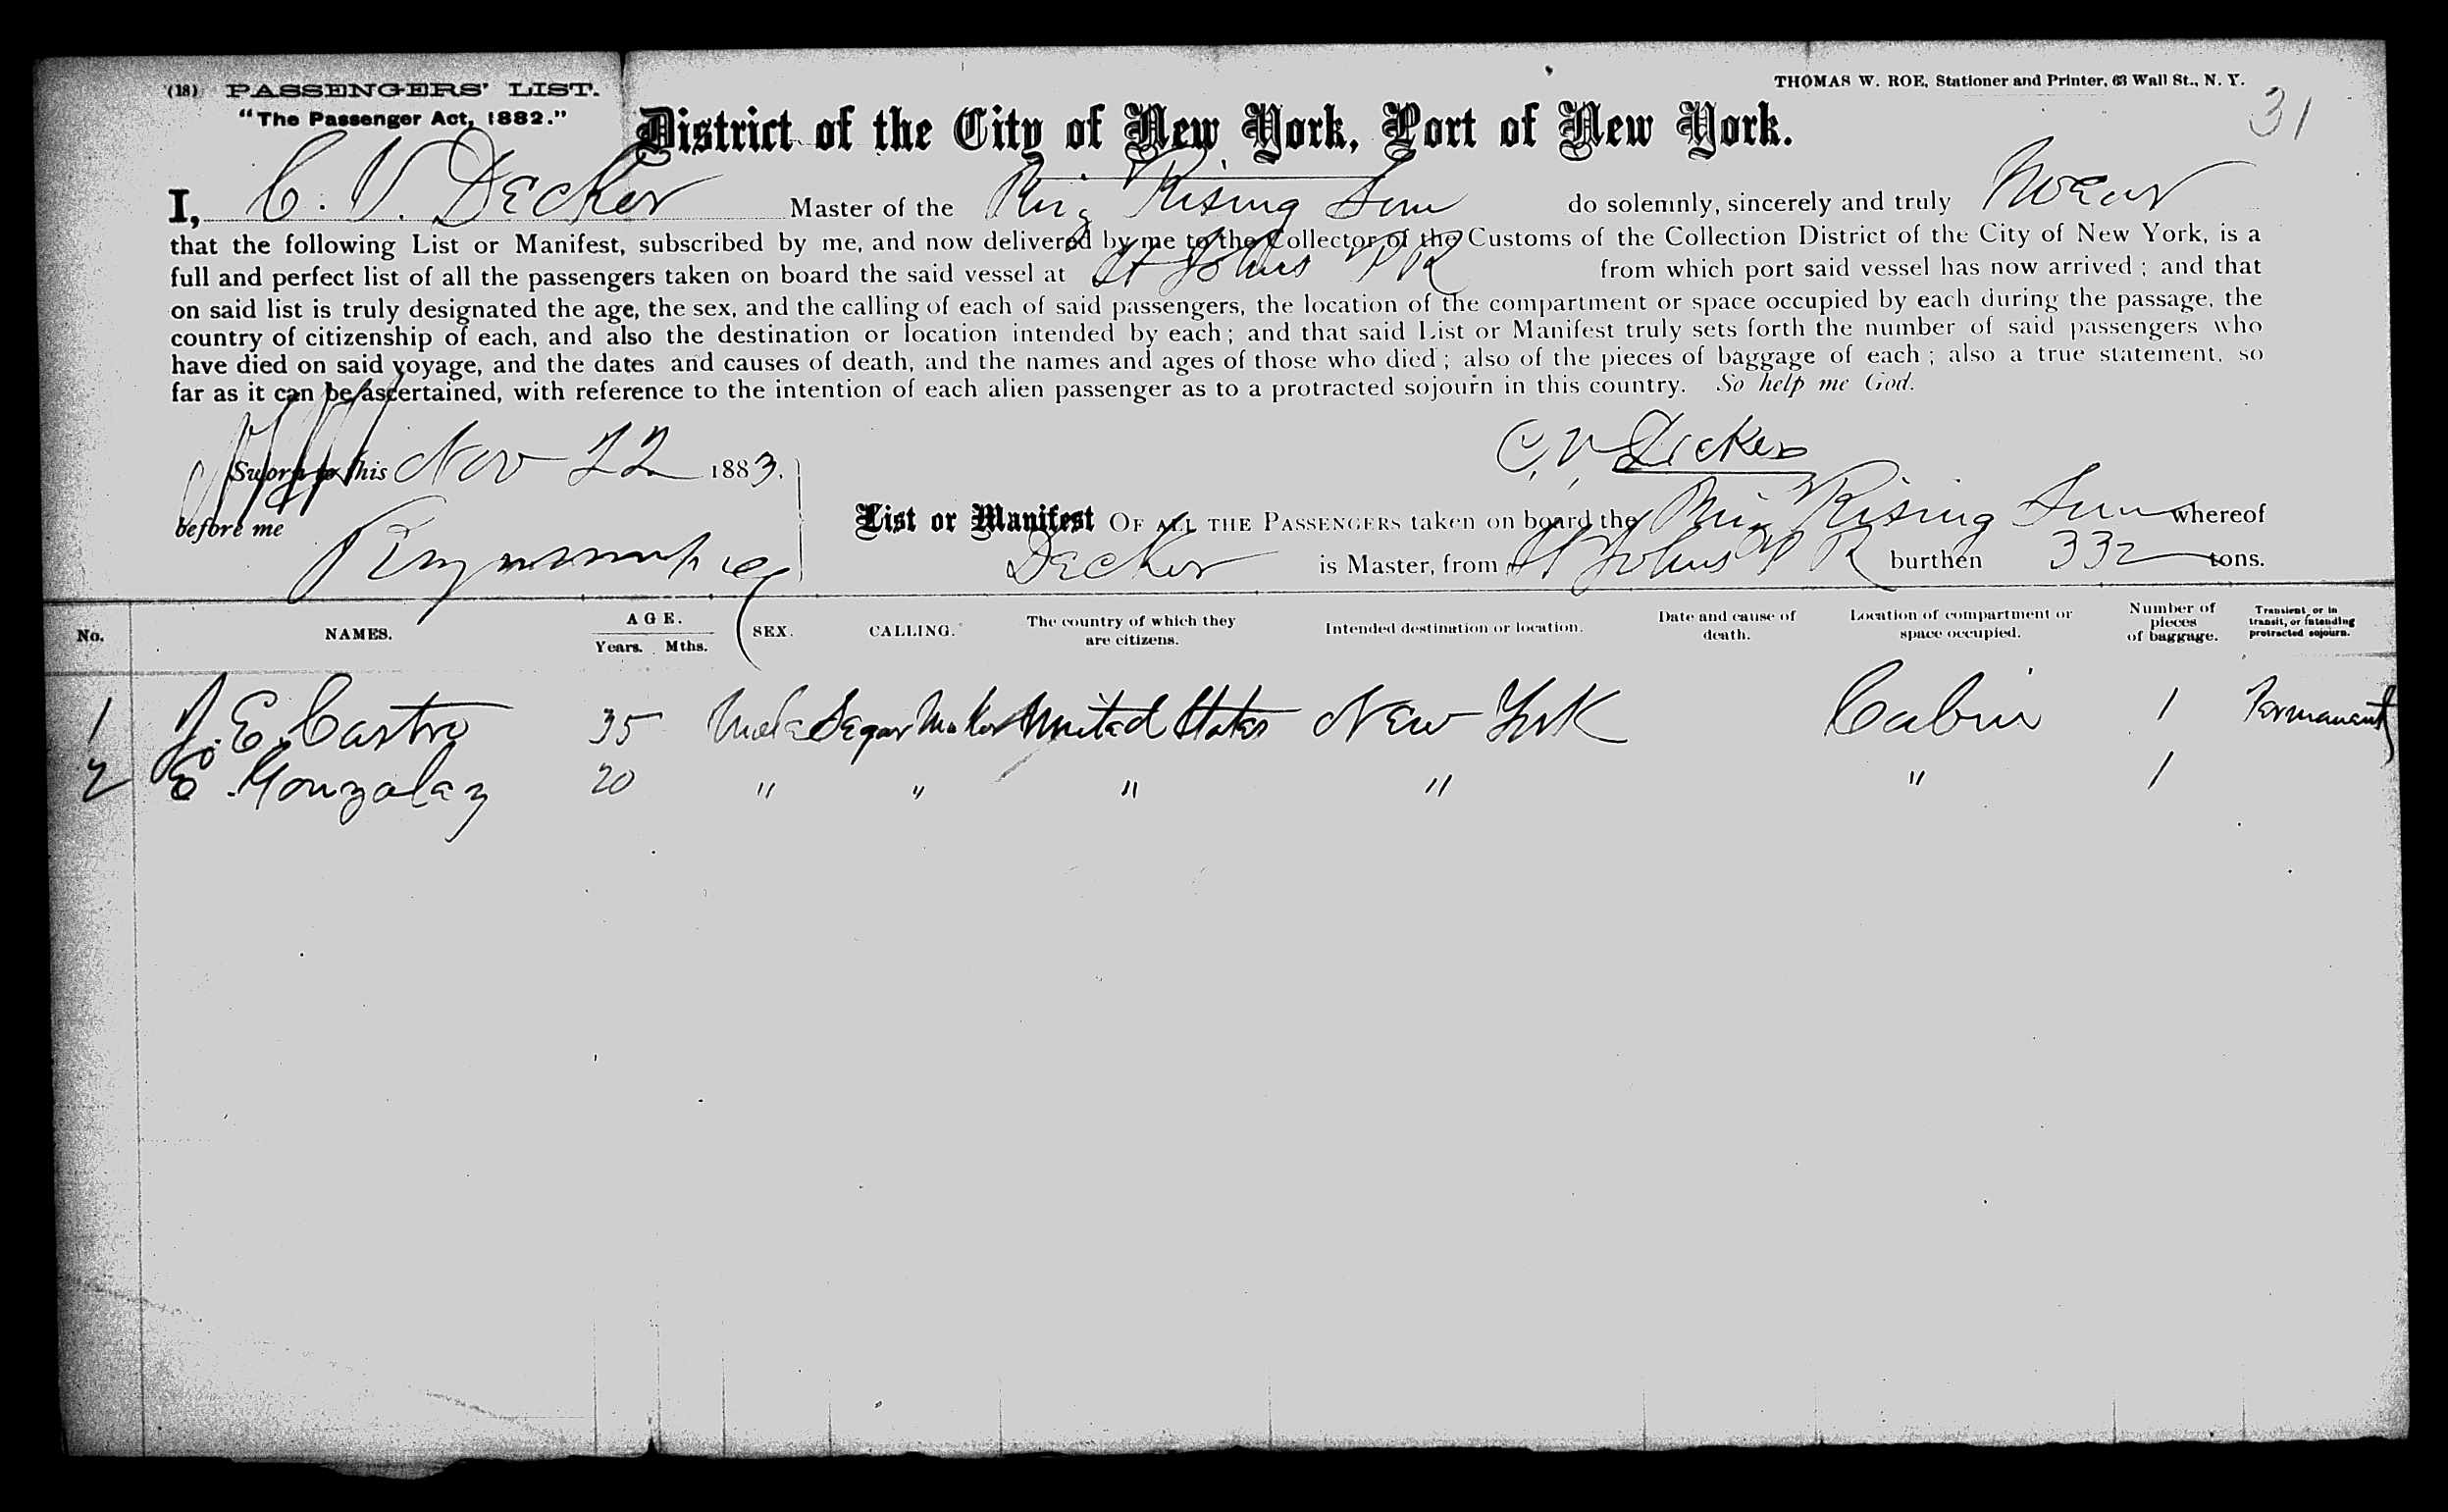 (18) PASSENGERS' LIST.
THOMAS W. ROE, Stationer and Printer, 63 Wall St., N. Y.
"The Passenger Act, 1882."
31
District of the City of New York, Port of New York.
I, C. V. Decker Master of the Rising Sun do solemnly, sincerely and truly swear
that the following List or Manifest, subscribed by me, and now delivered by me to the Collector of the Customs of the Collection District of the City of New York, is a
full and perfect list of all the passengers taken on board the said vessel at St Johns P R from which port said vessel has now arrived; and that
on said list is truly designated the age, the sex, and the calling of each of said passengers, the location of the compartment or space occupied by each during the passage, the
country of citizenship of each, and also the destination or location intended by each; and that said List or Manifest truly sets forth the number of said passengers who
have died on said voyage, and the dates and causes of death, and the names and ages of those who died; also of the pieces of baggage of each; also a true statement, so
far as it can be ascertained, with reference to the intention of each alien passenger as to a protracted sojourn in this country. So help me God.
C. V. Decker
Sworn to this Nov 22 1883.
before me
List or Manifest OF ALL THE PASSENGERS taken on board the Rising Sun whereof
Decker is Master, from St Johns P R burthen 332 tons.
No. NAMES. AGE. Years. Mths. SEX. CALLING. The country of which they are citizens. Intended destination or location. Date and cause of death. Location of compartment or space occupied. Number of pieces of baggage. Transient or in transit, or intending protracted sojourn.
1 J. E. Castro 35 Male Segar Maker United States New York Cabin 1 Permanent
2 E. Gonzalaz 20 " " " " " 1